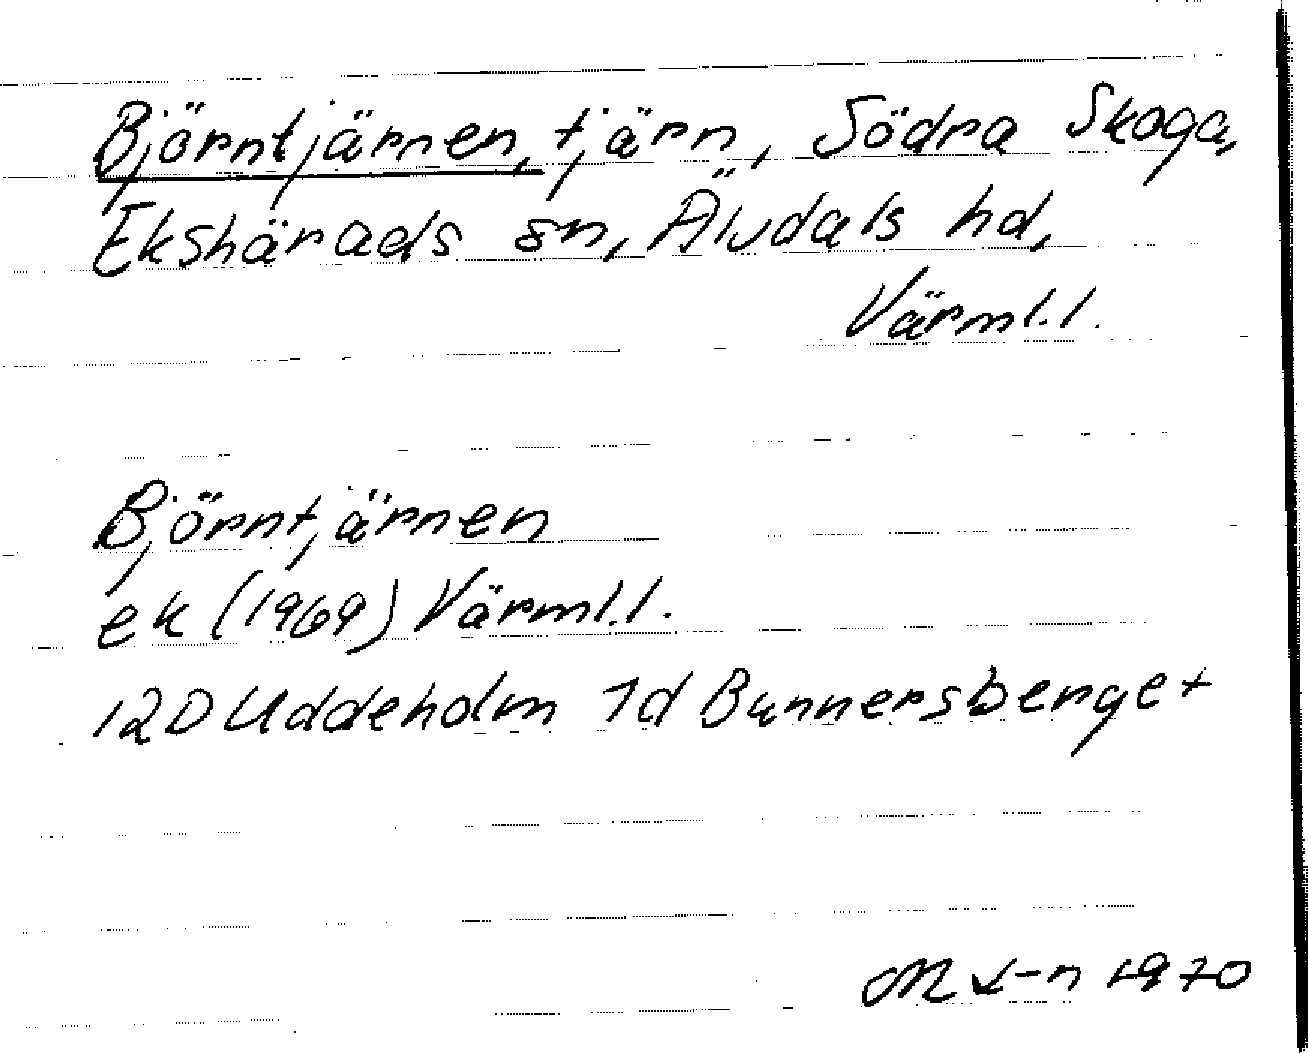 Björntjärnen, tjärn, Södra Skoga,
Ekshärads sn, Älvdals hd,
Värml.l.
Björntjärnen
ek (1969) Värml.l.
12D Uddeholm 7d Bunnersberget
1970